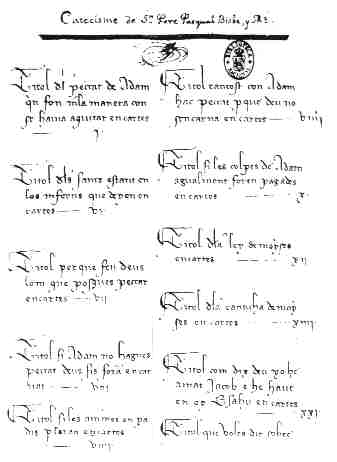 Catecisme de Sn. Pere Pasqual Bisbe, y Mr.
Titol dl peccat de Adam
qn fon in la manera con
se havia aquitar en cartes
I
Titol dls sants estant en
los inferns que deyen en
cartes — VI
Titol per que feu deus
lom que pogues peccar
en cartes — VII
Titol si Adam no hagues
peccat deus sis fora encar
nat — VIII
Titol si les animes en pa
dis ploran en cartes
VIIII
Titol tantost con Adam
hac peccat p que deu no
sencarna en cartes — VIIII
Titol si les colpes de Adam
agualment foren pagades
en cartes — X
Titol dla ley de moyses
en cartes — XII
Titol dla de moy
ses en cartes — XIIII
Titol com dix deu yo he
amat Jacob e he haut
en oy Esahu en cartes
XXI
Titol que volch dir sobre